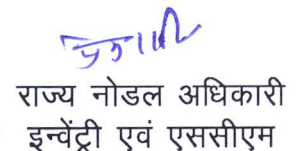 राज्य नोडल अधिकारी
इन्वेंट्री एवं एससीएम